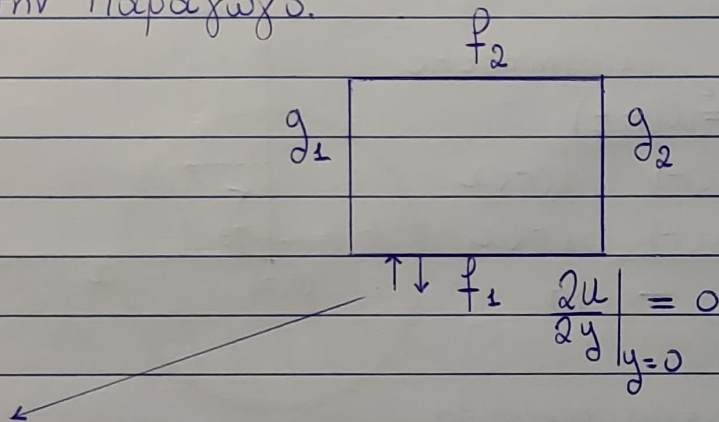 ην Παράγωγο.
f₂
g₁ g₂
↑↓ f₁ ∂u/∂y |y=0 = 0